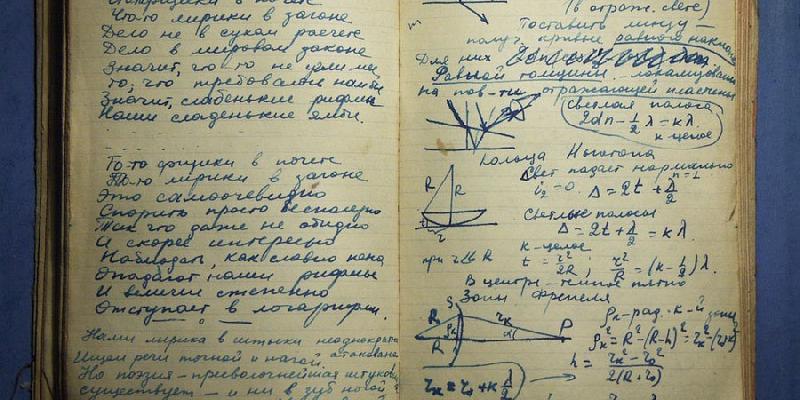 Что-то лирики в загоне
Дело не в сухом расчете
Дело в мировом законе
Значит, что-то не сумели мы
то, что требовалось нам бы
Значит, слабенькие рифмы
Наши сладенькие ямбы.
То-то физики в почете
То-то лирики в загоне
Это самоочевидно
Спорить просто бесполезно
Так что даже не обидно
И скорее интересно
Наблюдать, как словно пена
Опадают наши рифмы
И величие степенно
Отступает в логарифмы.
Нашу лирику в штыки неоднократно
Ищем речи точной и нагой.
Но поэзия – пресволочнейшая штуковина
существует – и ни в зуб ногой
(в отраж. свете)
Поставить линзу –
получ. кривые равного наклона
Для них
Равной толщины локализованы
на пов-ти отражающей пластины
Светлая полоса
2dn - 1/2 λ = kλ
k целое
Кольца Ньютона
Свет падает нормально
n = 1
i₂ = 0. Δ = 2t + λ/2
R R
Светлые полосы
Δ = 2t + λ/2 = kλ
k - целое
при r ≪ R t = r²/2R ; r²/R = (k - 1/2) λ.
В центре - темное пятно
Зоны Френеля
ρₖ - рад. k-й зоны
ρₖ² = R² - (R-h)² = rₖ² - (r₀+h)²
h = (rₖ² - r₀²)/2(R + r₀)
rₖ = r₀ + k λ/2